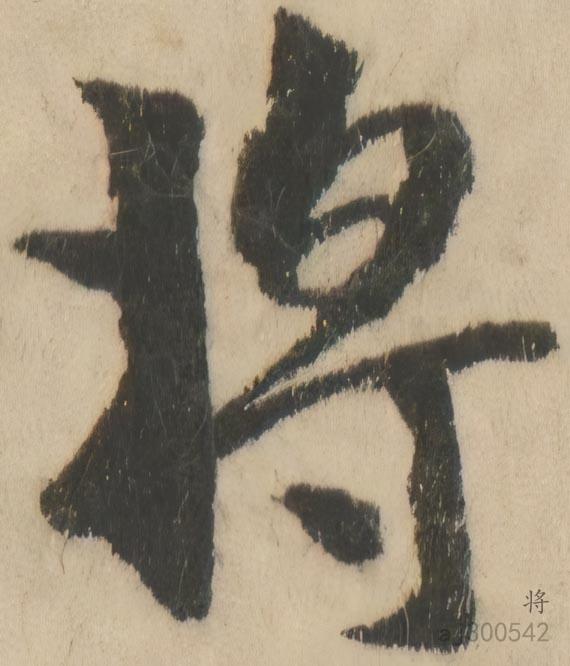 将
将
a7300542